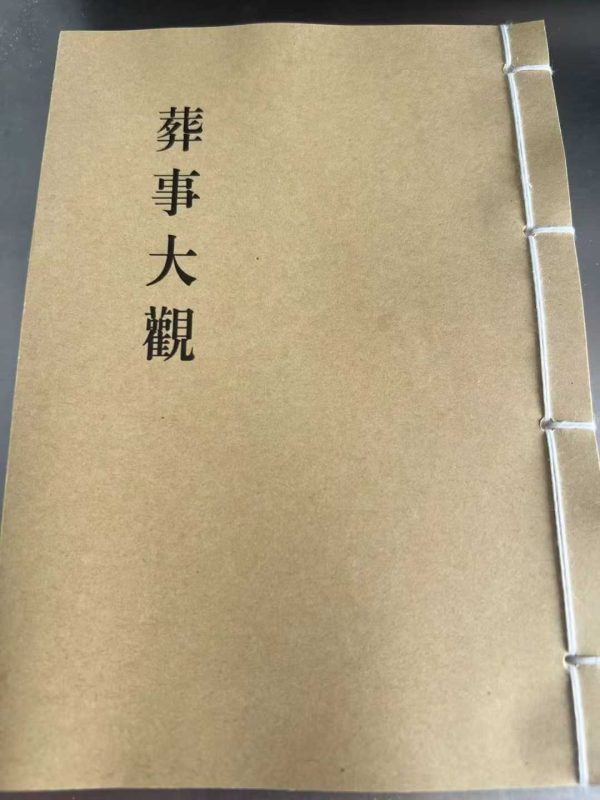 葬事大觀